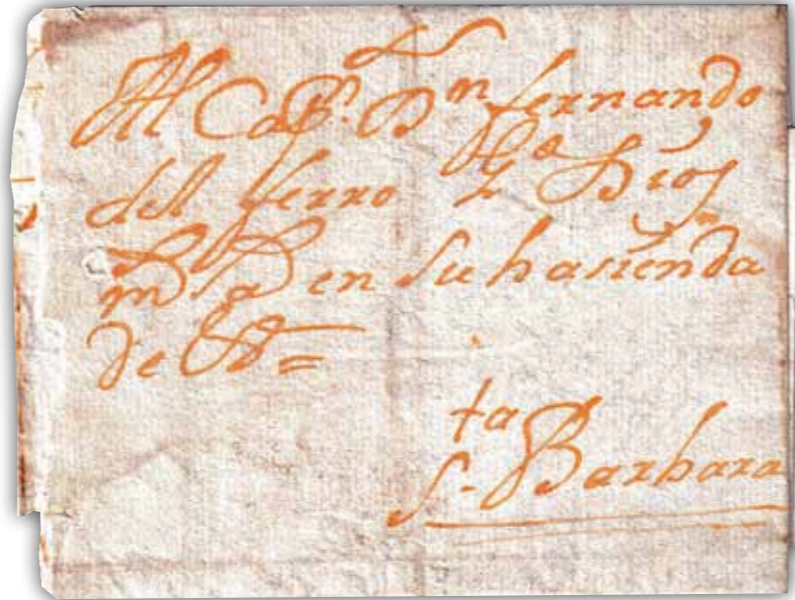 Al Cap.n Dn fernando
del ferro ga Dios
ms as en su hasienda
de
Sta Barbara